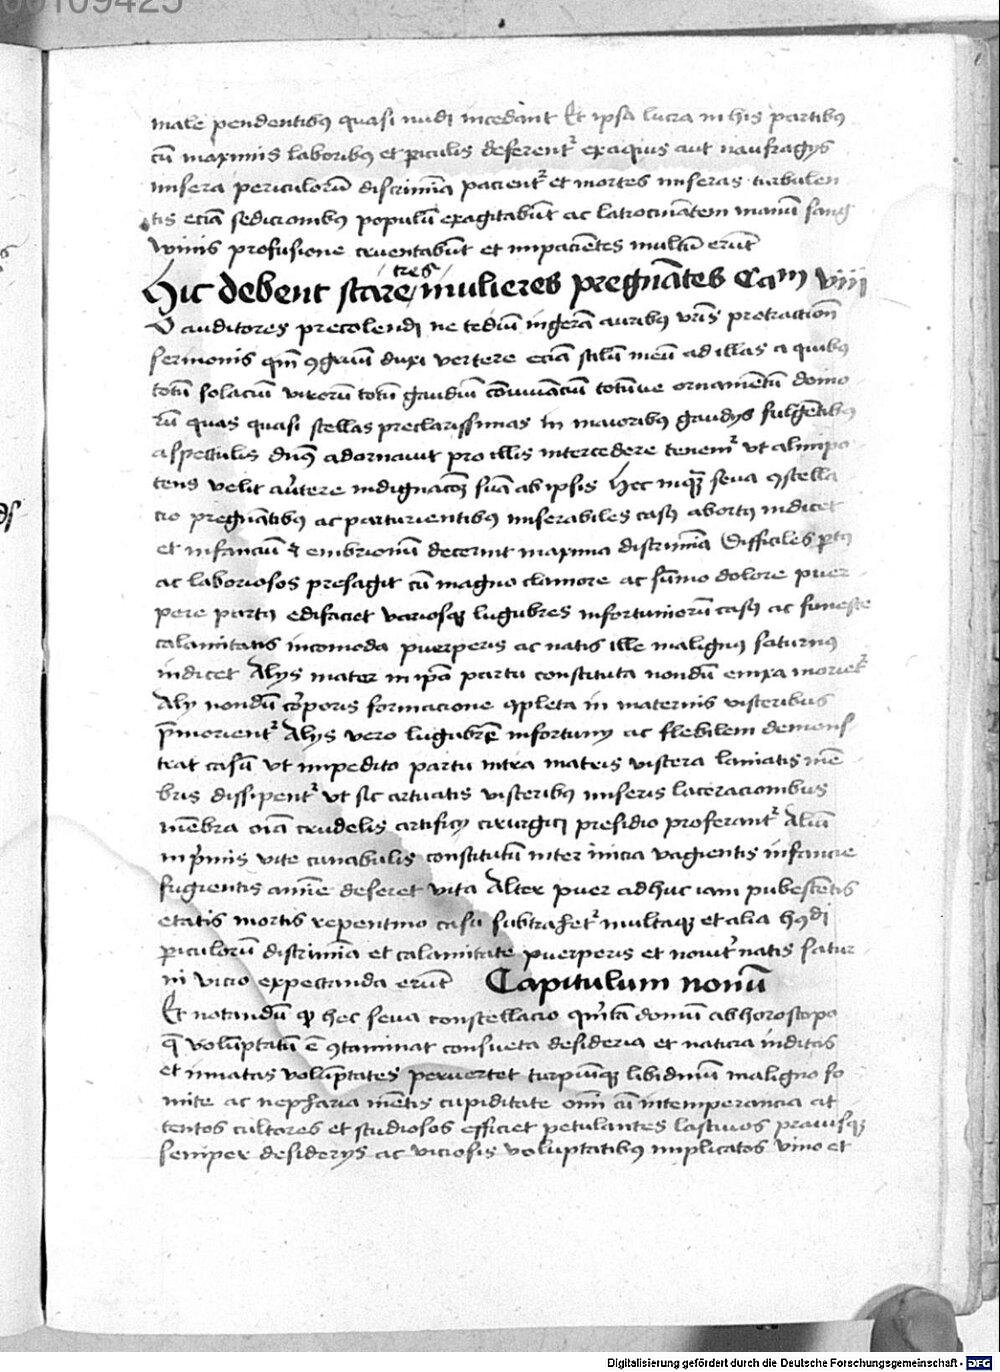 00109425
male pendentibꝯ quasi nudi incedant Et ipsa lucra in his partibꝯ
cū maximis laboribꝯ et ꝑiculis deferentʳ exaqius aut naufragijs
misera periculorū discrimīa pacientʳ et mortes miseras turbulen
tis eciā sedicionibꝯ populū exagitabūt ac latrocinātem manū sang
winis profusione cruentabūt et impacientes multū erūt
tres
Hic debent stare mulieres pregnātes Caᵐ viii
O auditores precolendi ne tediū ingerā auribꝯ vrīs protractionē
sermonis qm̄ ꝯgruū duxi vertere eciā stilū meū ad illas a quibꝯ
totū solaciū virorū totū gaudiū cōmūaciū totūue ornamētū domo
rū quas quasi stellas preclarissimas in maioribꝯ gaudijs fulgētibꝯ
aspectulis dn̄s adornauit pro illis intercedere tenemʳ vt alīmipo
tens velit au̓tere indignacōꝫ suā ab ipsis Hec inqꝫ seua ꝯstella
cio pregnātibꝯ ac parturientibꝯ miserabiles casꝯ abortꝯ indicet
et infanciū & embrionū decernit maxima discrimīa Difficiles ꝑtꝯ
ac laboriosos presagit cū magno clamore ac sūmo dolore puer
pere partꝯ edifaciet variosqꝫ lugubres infortuniorū casꝯ ac funeste
calamitatis incomoda puerperis ac natis ille malignꝯ saturnꝯ
indicet Alijs mater in ip̄a partu constituta nondū enixa morietʳ
Alij nondū co̓poris formacione ꝯpleta in maternis visceribus
p̄morientʳ Alijs vero lugubrē infortunij ac flebilem demons
trat casū vt impedito partu intra matris viscera laniatis mē
bris dissipentʳ vt sic artuatis visceribꝯ miseris laceracionibus
mēbra oīa crudelis artificij cirurgici presidio proferantʳ Aliū
in p̓mis vite cunabulis constitutū inter inicia vagientis infancie
fugientis anīe deseret vita Alter puer adhuc iam pubescētis
etatis mortis repentino casu subtrahetʳ multaqꝫ et alia hꝯdi
ꝑiculorū discrimīa et calamitate puerperis et nouit̓ natis satur
ni vicio expectanda erūt Capitulum nonū
Et notandū ꝙ hec seua constellacio qu̓ītā domū ab horoscopo
q̄ volūptatū ē ꝯtaminat consueta desideria et natura inditas
et innatas volūptates peruertet turpiūqꝫ libidinū maligno fo
mite ac nepharia mētis cupiditate om̄i cū intemperancia at
tentos cultores et studiosos efficiet petulantes lasciuos prauisqꝫ
semper desiderijs ac viciosis voluptatibꝯ implicatos vino et
Digitalisierung gefördert durch die Deutsche Forschungsgemeinschaft - DFG